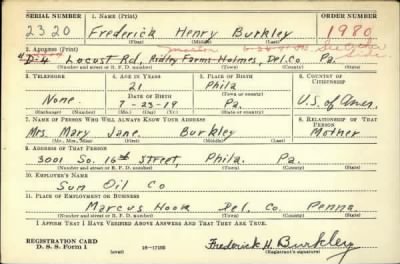 SERIAL NUMBER 1. NAME (Print) ORDER NUMBER
2320 Frederick Henry Burkley 1980
(First) (Middle) (Last)
2. ADDRESS (Print)
D-4 Locust Rd, Ridley Farms-Holmes, Del.Co Pa.
(Number and street or R. F. D. number) (Town) (County) (State)
3. TELEPHONE 4. AGE IN YEARS 5. PLACE OF BIRTH 6. COUNTRY OF CITIZENSHIP
21 Phila
DATE OF BIRTH (Town or county)
None. 7-23-19 Pa. U.S. of Amer.
(Exchange) (Number) (Mo.) (Day) (Yr.) (State or country)
7. NAME OF PERSON WHO WILL ALWAYS KNOW YOUR ADDRESS 8. RELATIONSHIP OF THAT PERSON
Mrs. Mary Jane Burkley Mother
(Mr., Mrs., Miss) (First) (Middle) (Last)
9. ADDRESS OF THAT PERSON
3001 So. 16th Street, Phila. Pa.
(Number and street or R. F. D. number) (Town) (County) (State)
10. EMPLOYER'S NAME
Sun Oil Co
11. PLACE OF EMPLOYMENT OR BUSINESS
Marcus Hook Del. Co. Penna.
(Number and street or R. F. D. number) (Town) (County) (State)
I AFFIRM THAT I HAVE VERIFIED ABOVE ANSWERS AND THAT THEY ARE TRUE.
REGISTRATION CARD
D. S. S. Form 1 (over) 16-17105 Frederick H. Burkley
(Registrant's signature)